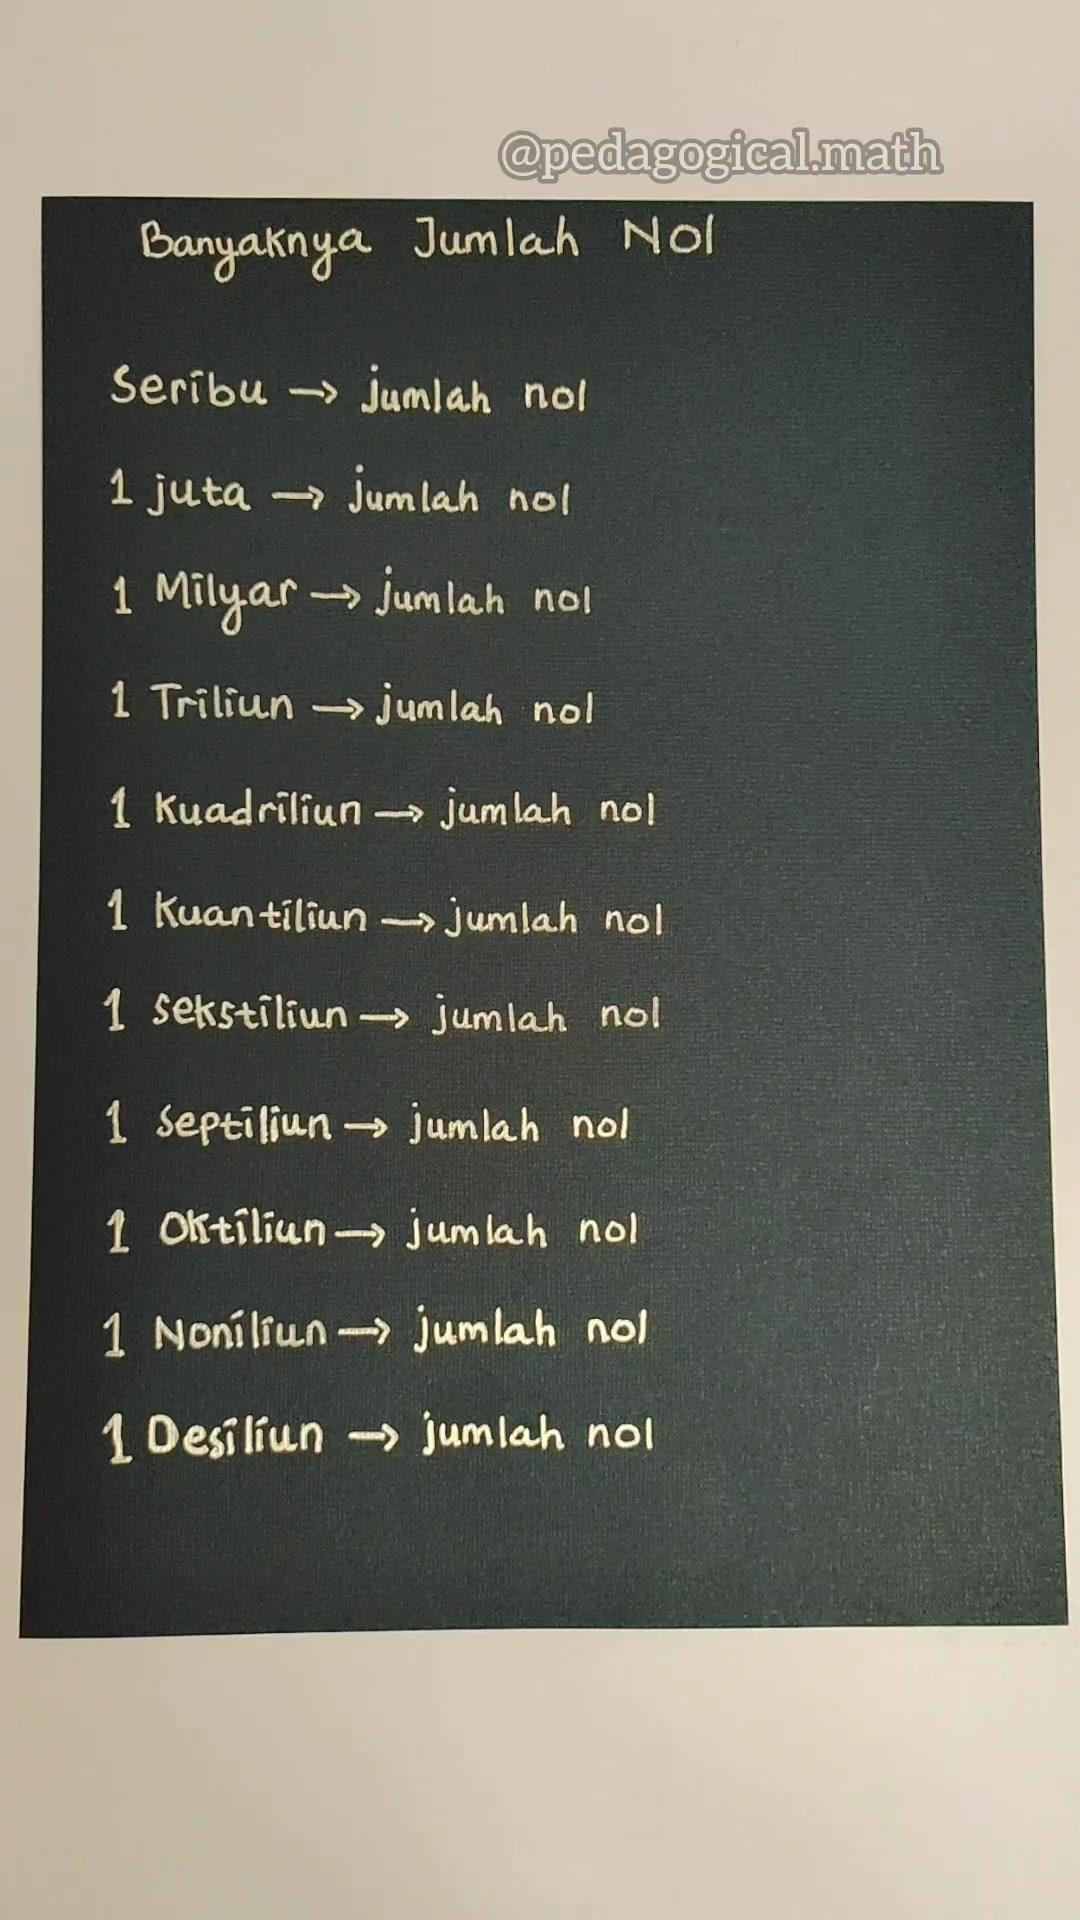 @pedagogical.math
Banyaknya Jumlah Nol
Seribu → jumlah nol
1 juta → jumlah nol
1 Milyar → jumlah nol
1 Triliun → jumlah nol
1 Kuadriliun → jumlah nol
1 Kuantiliun → jumlah nol
1 Sekstiliun → jumlah nol
1 Septiliun → jumlah nol
1 Oktiliun → jumlah nol
1 Noniliun → jumlah nol
1 Desiliun → jumlah nol